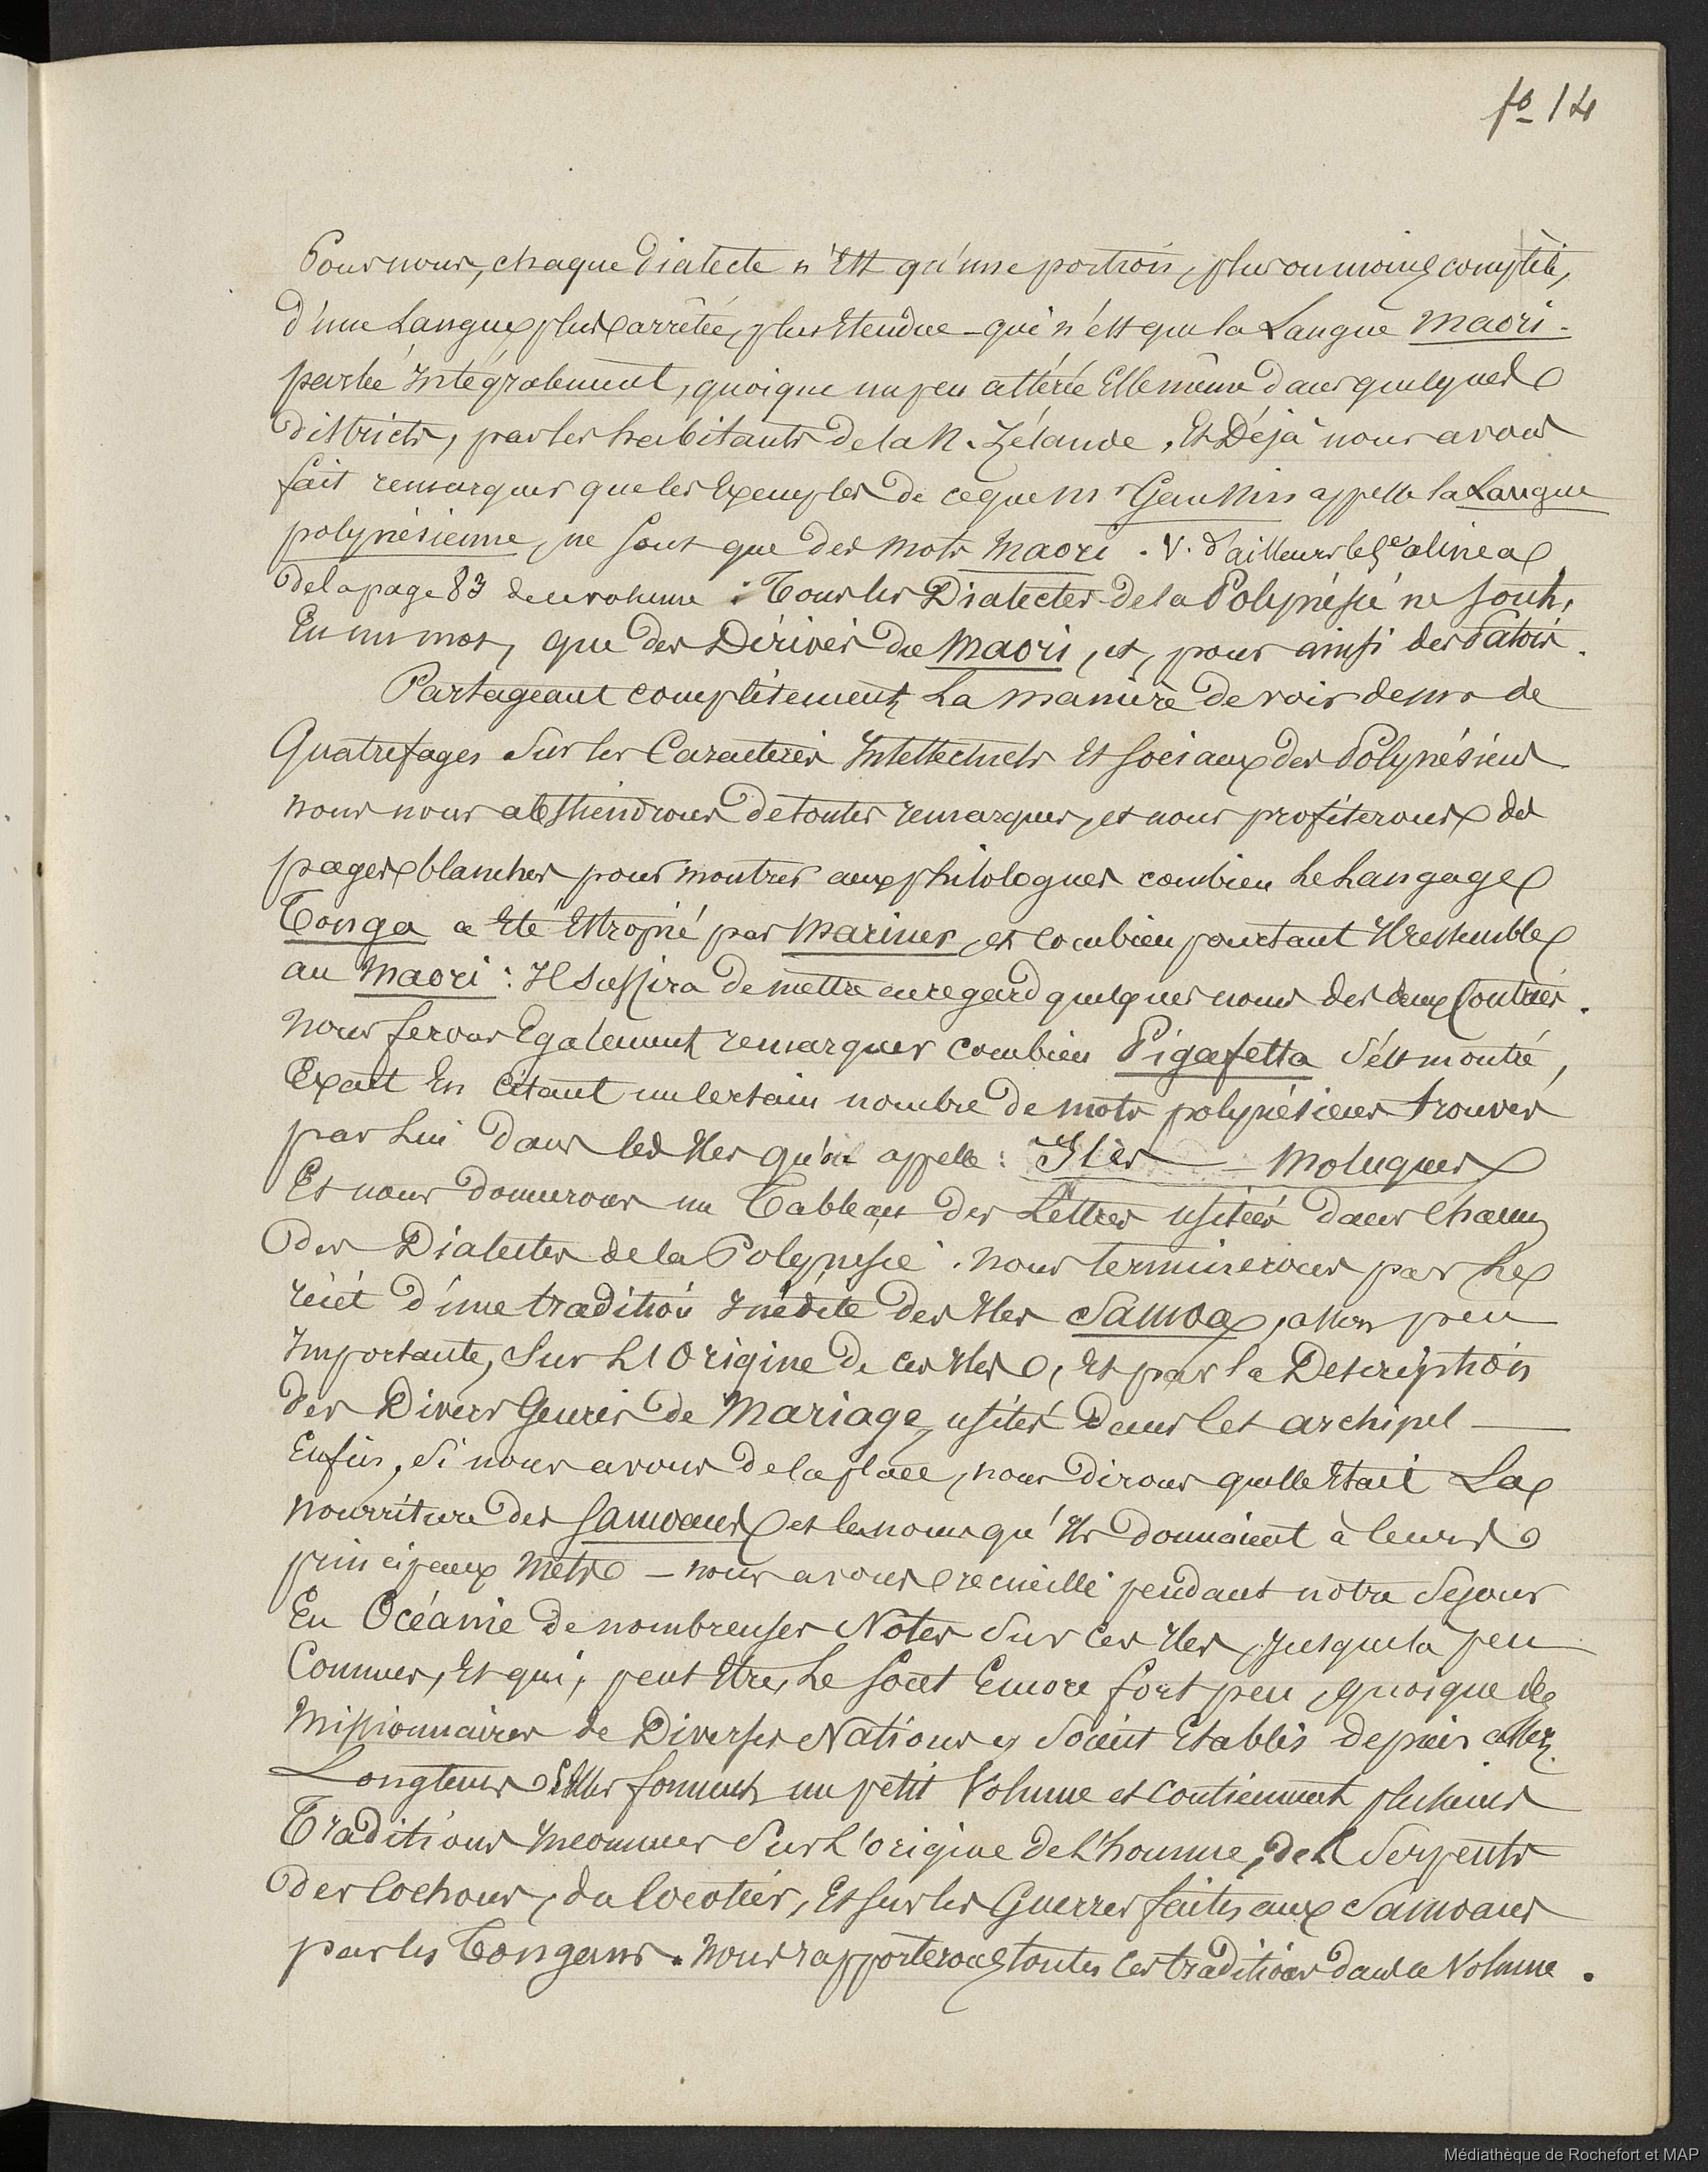 fo 14
Pour nous, chaque Dialecte n'Est qu'une portion, plus ou moins complète,
D'une Langue plus arrêtée, plus Etendue – qui n'est que la Langue Maori -
parlée Intégralement, quoique un peu altérée Elle même dans quelques
Districts, par les habitants de la N. Zélande. Et Déjà nous avons
fait remarquer que les Exemples de ce que Mr Gaussin appelle la Langue
polynésienne, ne sont que des mots Maori. V. d'ailleurs le alinea
De la page 83 de ce volume : Tous les Dialectes de la Polynésie ne sont,
En un mot, que des Dérivés du Maori, et, pour ainsi des Patois.
Partageant complètement La manière De voir de Mr de
Quatrefages Sur les Caractères Intellectuels Et sociaux des Polynésiens
nous nous abstiendrons De toutes remarques, et nous profiterons des
pages blanches pour montrer aux philologues combien Le Langage
Tonga a Eté Estropié par Mariner, et combien pourtant Il ressemble
au Maori : Il suffira De mettre en regard quelques noms des deux Contrées.
Nous ferons Egalement remarquer combien Pigafetta S'est montré,
Exact En Citant un Certain nombre De mots polynésiens trouvés
par Lui Dans les Iles qu'il appelle : Iles Moluques
Et nous Donnerons un Tableau Des Lettres usitées dans Chacun
Des Dialectes de la Polynésie. Nous terminerons par Le
récit D'une tradition Inédite Des Iles Samoa, assez peu
Importante, Sur L'Origine De ces Iles, Et par la Description
Des Divers Genres De Mariage, usités Dans Cet archipel —
Enfin, Si nous avons De la place, nous Dirons quelle Etait La
Nourriture des Samoans et les noms qu'Ils Donnaient à leurs
principaux Mets – nous avons recueilli pendant notre Sejour
En Océanie De nombreuses Notes Sur Ces Iles, Jusque là peu
Connues, Et qui, peut Etre, Le Sont Encore fort peu, quoique des
Missionnaires de Diverses Nations y Soient Etablis depuis assez
Longtems Elles forment un petit Volume et Contiennent plusieurs
Traditions Inconnues Sur L'Origine De L'homme, des Serpents
Des Cochons, du Cocotier, Et sur les Guerres faites aux Samoans
par les Tongans. Nous rapporterons toutes Ces traditions dans ce Volume.
Médiathèque de Rochefort et MAP